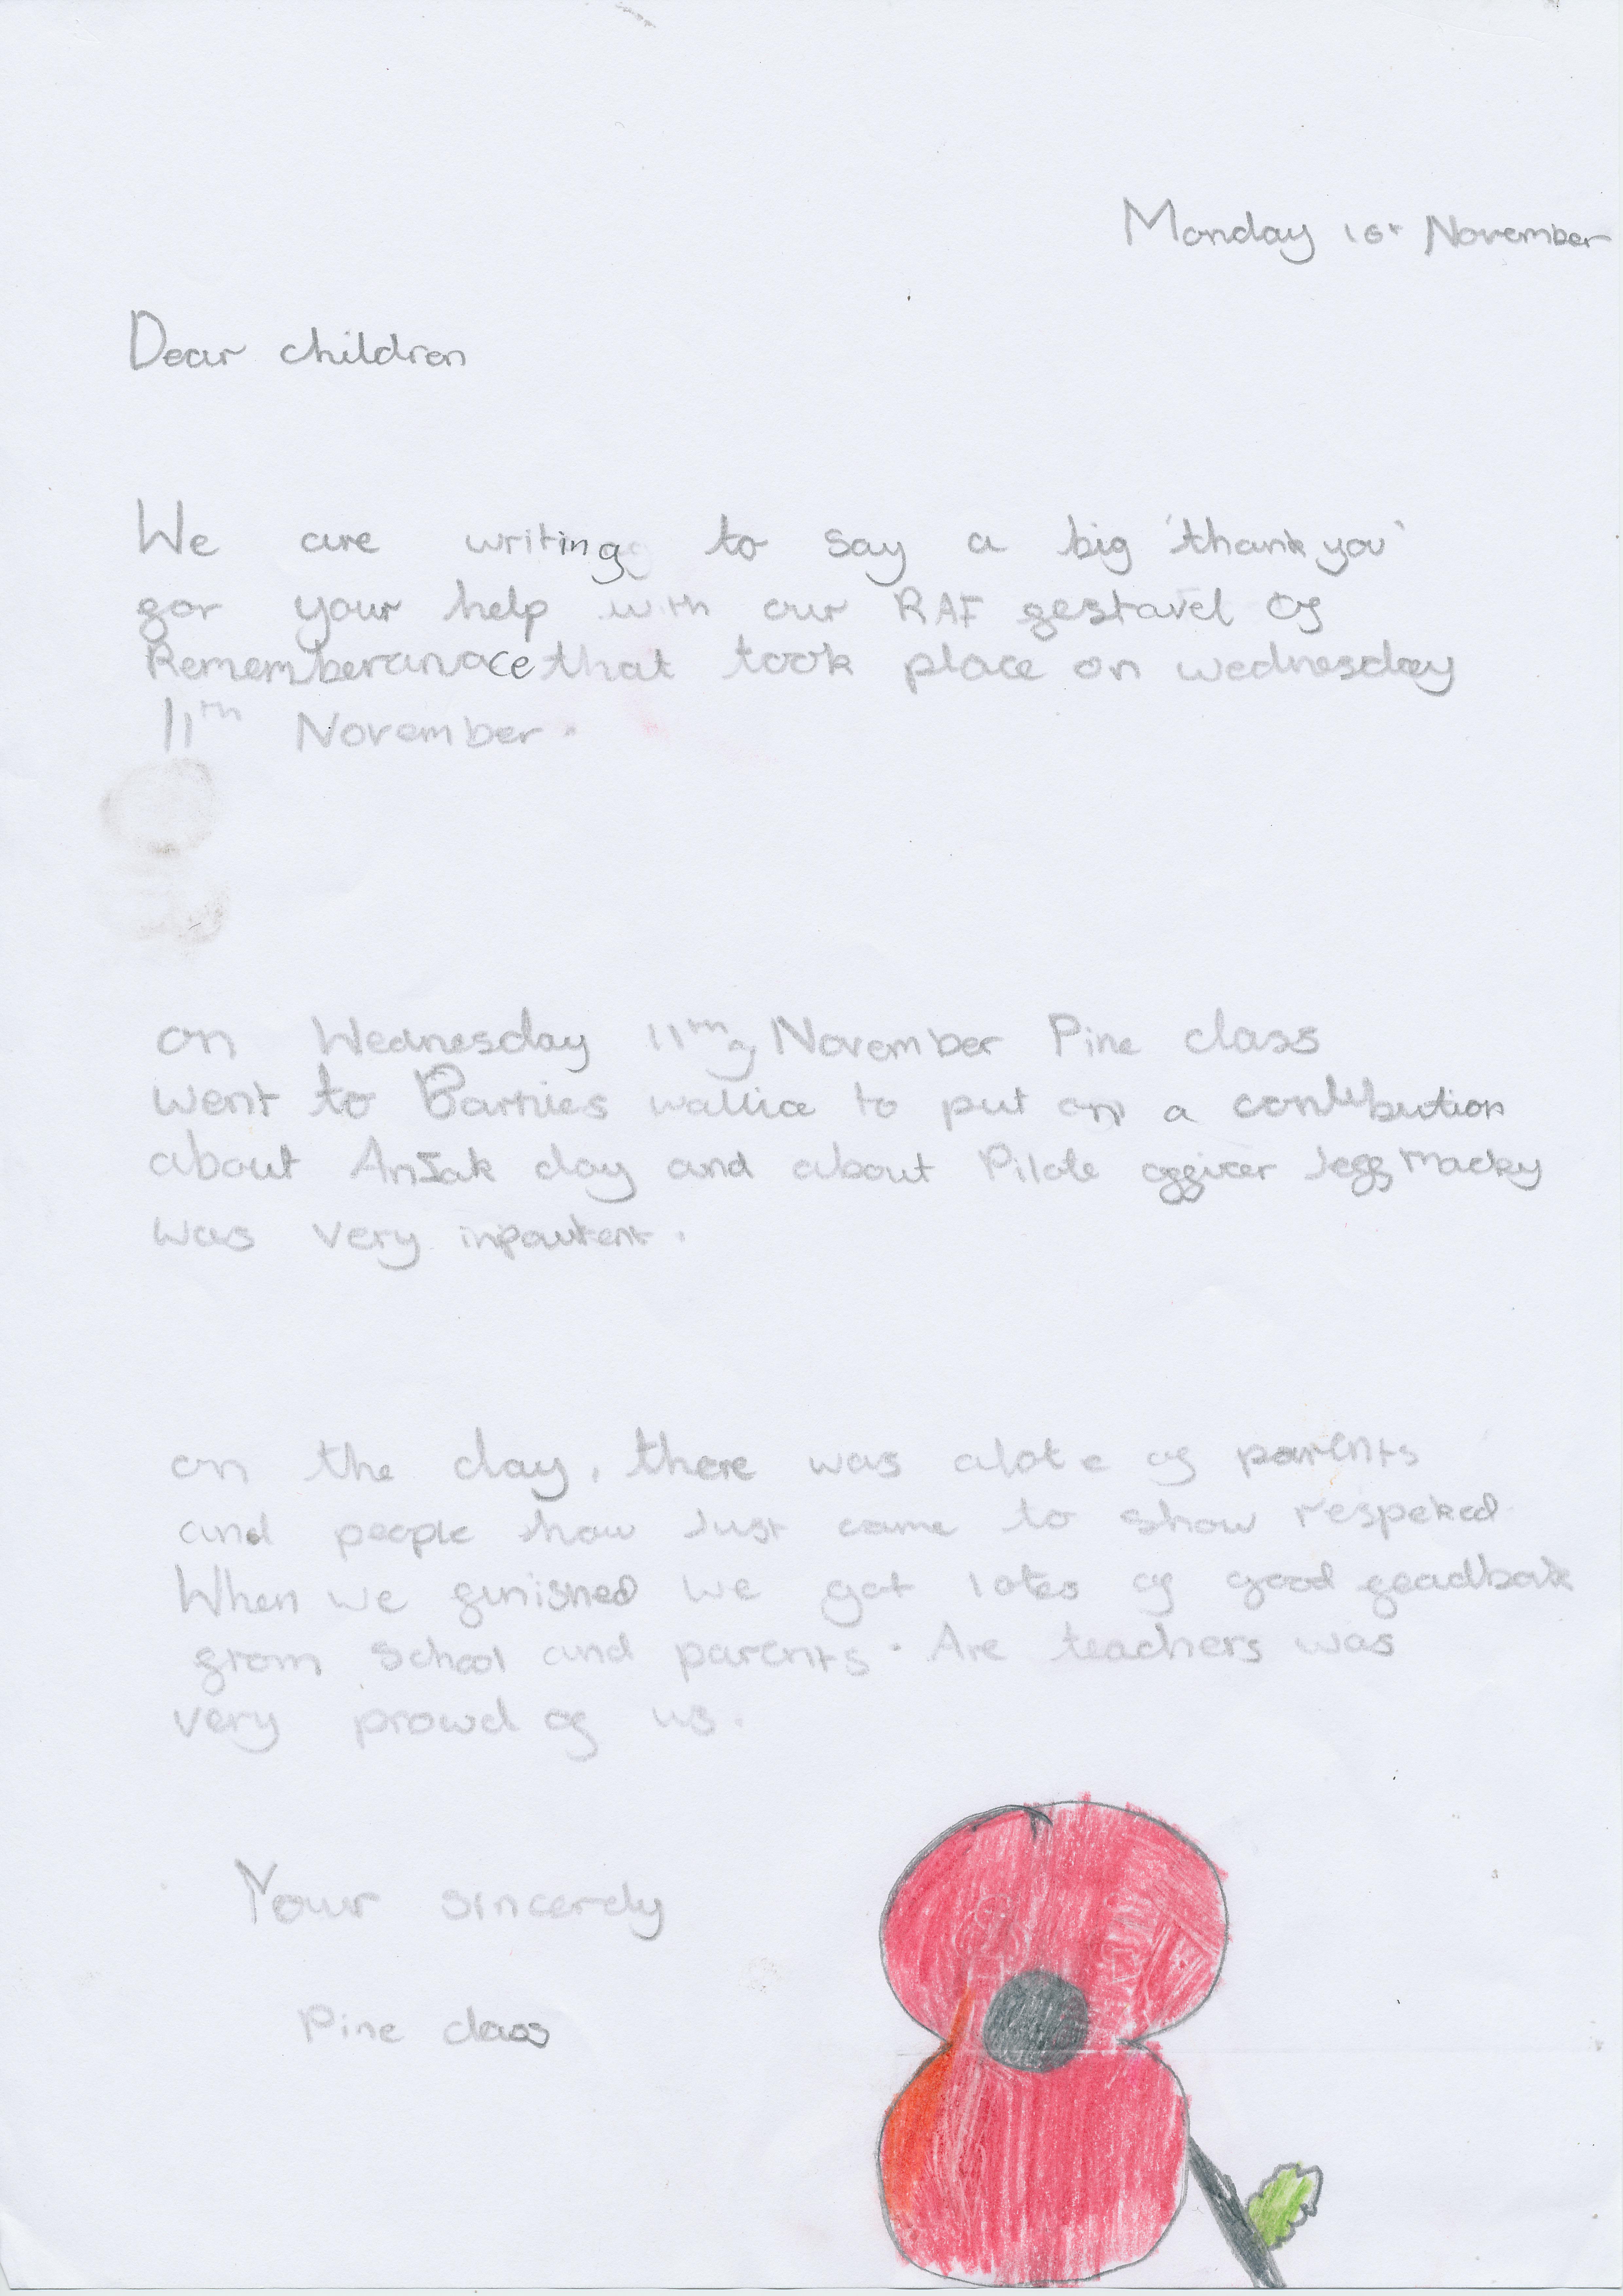 Monday 16th November
Dear children
We are writing to say a big 'thank you'
for your help with our RAF festavel of
Rememberanace that took place on wednesday
11th November.
on Wednesday 11th November Pine class
went to Barnies wallice to put on a contribution
about Anzak day and about Pilote officer Jeff Macky
was very inpautent.
on the day, there was alote of parents
and people how Just came to show respeked
When we finished we got lotes of good feadback
from school and parents. Are teachers was
very prowd of us.
Your sincerely
Pine class